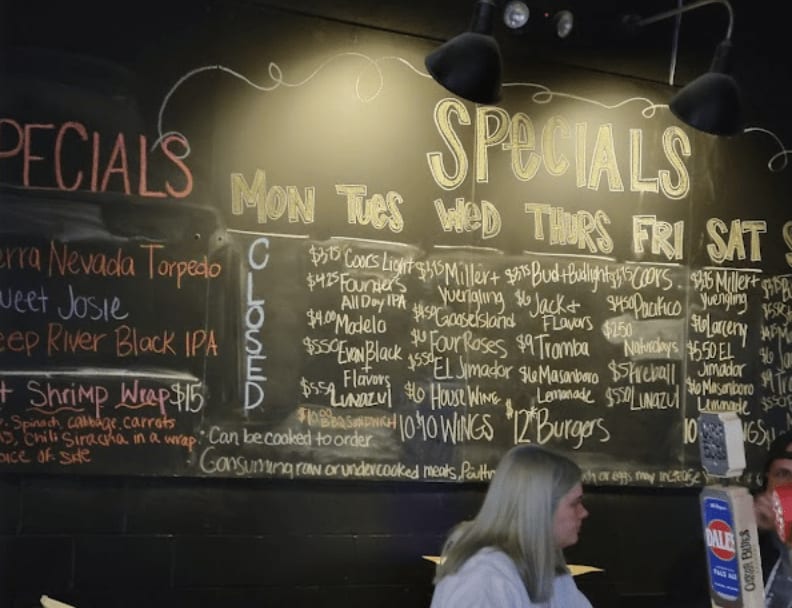 PECIALS
erra Nevada Torpedo
weet Josie
eep River Black IPA
+ Shrimp Wrap $15
Spinach, cabbage, carrots
Chili Siracha in a wrap.
oice of side
SPECIALS
MON TUES WED THURS FRI SAT S
CLOSED
$3.75 Coors Light
$4.25 Founders
All Day IPA
$4.00 Modelo
$5.50 Evan Black
+ Flavors
$5.50 Lunazul
$10.00 BBQ SANDWICH
$3.75 Miller +
Yuengling
$4.50 Goose Island
Four Roses
$5.50 EL Jimador
$6 House Wine
10 $10 WINGS
$3.75 Bud + Budlight
$6 Jack +
Flavors
$9 Tromba
$6 Masonboro
Lemonade
$12* Burgers
$3.75 COORS
$4.50 Pacifico
$2.50
Naturdays
$5 Fireball
$5.50 Lunazul
$3.75 Miller +
Yuengling
$6 Larceny
$5.50 EL
Jimador
$6 Masonboro
Lemonade
*Can be cooked to order
Consuming raw or undercooked meats, Poultry
or eggs may increase
DALE'S
PALE ALE
OSKAR BLUES